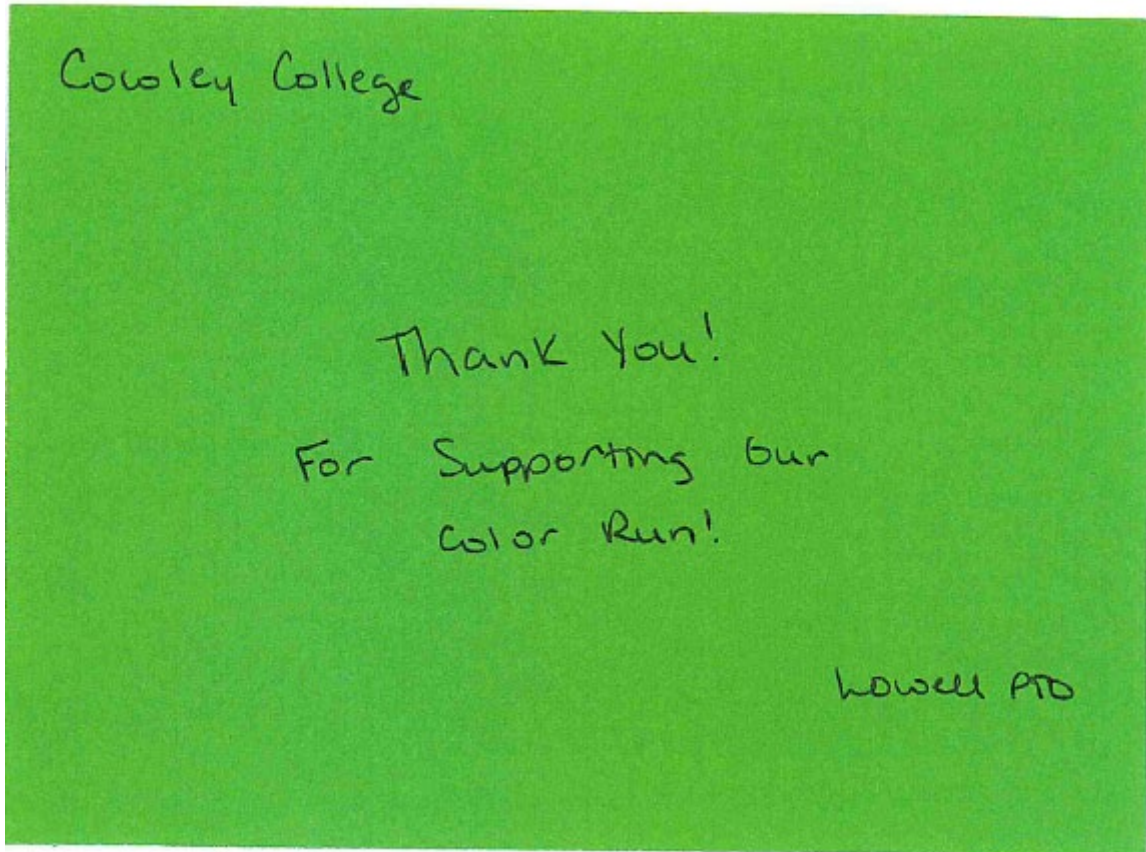 Cowley College
Thank You!
For Supporting Our
Color Run!
Lowell PTO